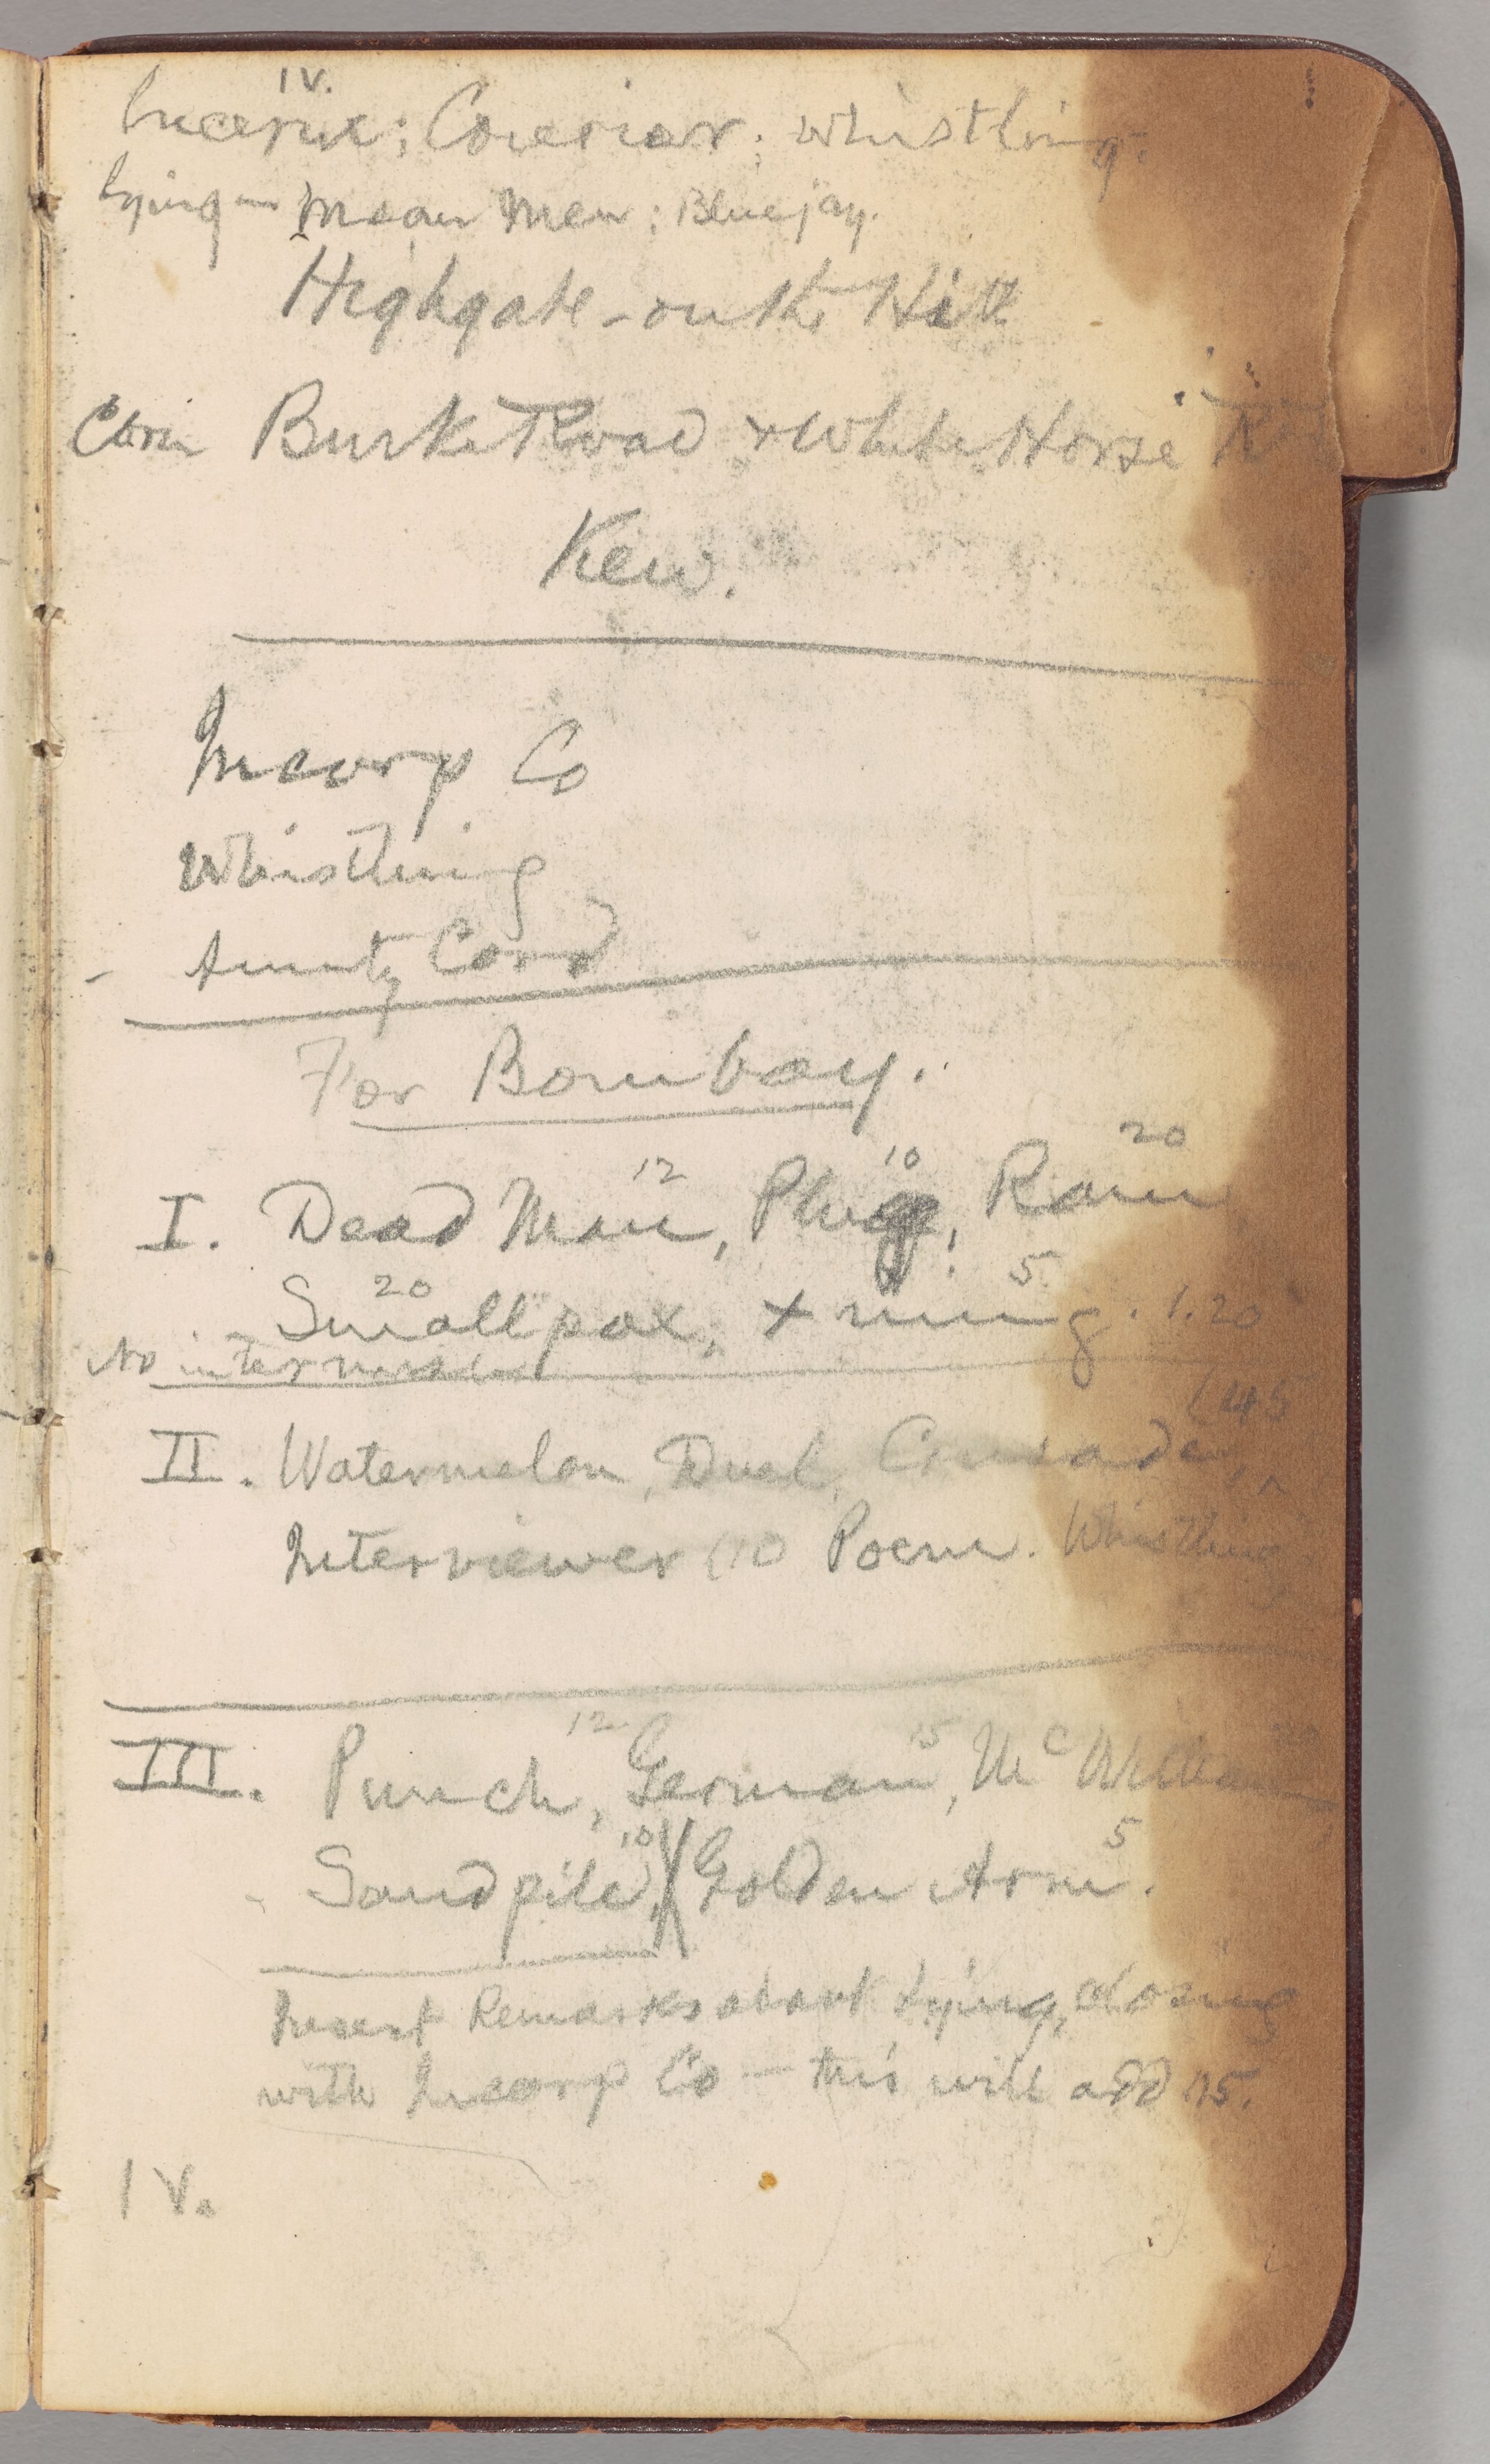 IV.
Incorp; Courier; Whistling.
Lying — Mean Men; Bluejay.
Highgate-on the Hill
Corner Burke Road & White Horse Rd
Kew.
Incorp Co
Whistling
- Aunty Cord
For Bombay.
12 10 20
I. Dead Man, Plug, Ram
20 5
Smallpox, + ming. 1.20
No intermission
(45
II. Watermelon, Duel, Crusade,
Interviewer (10 Poem. Whistling
12 15 20
III. Punch, German, McWilliams
10 5
Sandpile, Golden Arm.
Insert Remarks about Lying, closing
with Incorp Co — this will add 15.
IV.